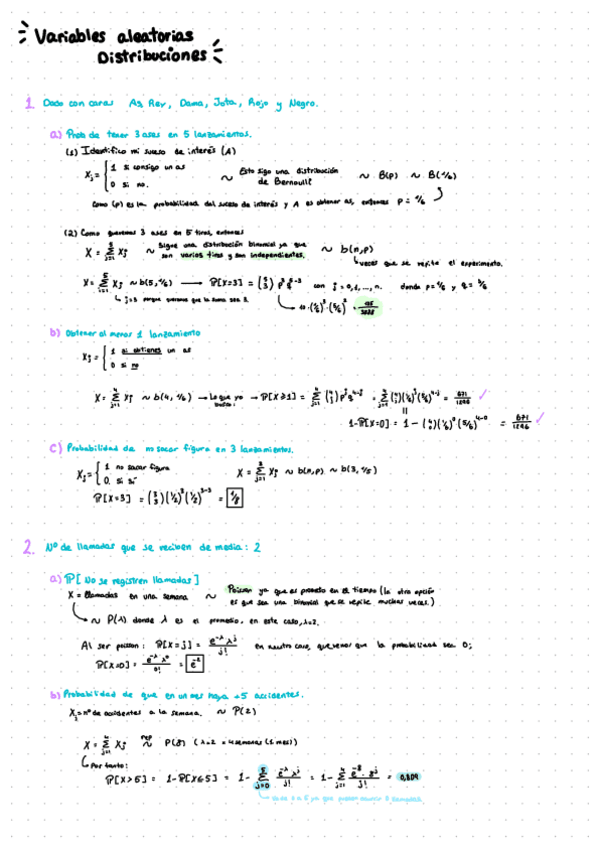 Variables aleatorias
Distribuciones
1. Dado con caras As, Rey, Dama, Jota, Rojo y Negro.
a) Prob de tener 3 ases en 5 lanzamientos.
(1) Identifico mi suceso de interés (A)
Xj = { 1 si consigo un as
0 si no.
~ Esto sigo una distribución de Bernoulli ~ B(p) ~ B(1/6)
Como (p) es la probabilidad del suceso de interés y A es obtener as, entonces p = 1/6
(2) Como queremos 3 ases en 5 tiros, entonces
X = Σ Xj ~ Sigue una distribución binomial ya que son varios tiros y son independientes. ~ b(n,p)
veces que se repite el experimento.
X = Σ Xj ~ b(5,1/6) → P[X=3] = (5 3) p³ q⁵⁻³ con j = 0,1, ..., n. donde p=1/6 y q = 5/6
j=3 porque queremos que la suma sea 3.
b) Obtener al menos 1 lanzamiento
Xj = { 1 si obtienes un as
0 si no
X = Σ Xj ~ b(4, 1/6) → Lo que yo busco: → P[X≥1] = Σ (4 j) p^j q^4-j = Σ (4 j)(1/6)^j (5/6)^4-j = 671/1296 ✓
1-P[X=0] = 1 - (4 0)(1/6)⁰ (5/6)⁴⁻⁰ = 671/1296 ✓
c) Probabilidad de no sacar figura en 3 lanzamientos.
Xj = { 1 no sacar figura
0 si sí
X = Σ Xj ~ b(n,p) ~ b(3, 1/2)
P[X=3] = (3 3)(1/2)³(1/2)³⁻³ = 1/8
2. Nº de llamadas que se reciben de media: 2
a) P[No se registren llamadas]
X = llamadas en una semana ~ Poisson ya que es promedio en el tiempo (la otra opción
es que sea una binomial que se repite muchas veces.)
~ P(λ) donde λ es el promedio, en este caso, λ=2.
Al ser poisson: P[X=j] = e^-λ λ^j / j! en nuestro caso, queremos que la probabilidad sea 0;
P[X=0] = e^-λ λ⁰ / 0! = e⁻²
b) Probabilidad de que en un mes haya +5 accidentes.
Xj = nº de accidentes a la semana. ~ P(2)
X = Σ Xj ~ rep P(8) (λ=2 × 4 semanas (1 mes))
Por tanto:
P[X>5] = 1-P[X≤5] = 1 - Σ e^-λ λ^j / j! = 1 - Σ e⁻⁸ · 8^j / j! = 0,809